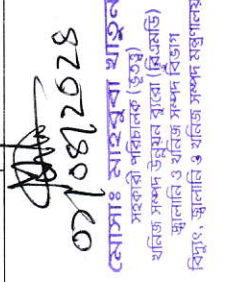 ০১/০৪/২০২৪
মোসাঃ মাহবুবা খাতুন
সহকারী পরিচালক (ভূতত্ত্ব)
খনিজ সম্পদ উন্নয়ন ব্যুরো (বিএমডি)
জ্বালানি ও খনিজ সম্পদ বিভাগ
বিদ্যুৎ, জ্বালানি ও খনিজ সম্পদ মন্ত্রণালয়